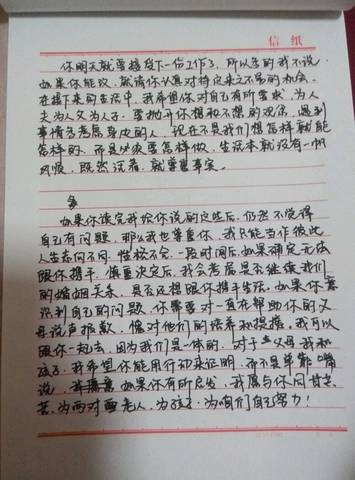 信纸
你明天就要接受下一份工作了，所以多的我不说，
如果你能改，就请你认真对待这来之不易的机会，
在接下来的生活中，我希望你对自己有所要求，为人
夫为人父为人子，要抛开你想和不想的观念，遇到
事情多考虑身边的人，现在不是我们想怎样就能
怎样的，而是必须要怎样做，生活本就没有一帆
风顺，既然活着，就尊重事实。
如果你读完我给你说的这些后，仍然不觉得
自己有问题，那么我也尊重你，我只能当作彼此
人生方向不同，性格不合，一段时间后，如果确定无法
跟你携手，慎重决定后，我会考虑是否继续我们
的婚姻关系，是否还想跟你携手生活，如果你意
识到自己的问题，你需要对一直在帮助你的父
母说声抱歉，愧对他们的培养和提携，我可以
跟你一起去，因为我们是一体的，对于父母我和
孩子，我希望你能用行动来证明，而不是单靠嘴
说，如果你有所启发，我愿与你同甘共
苦，为两对老人，为孩子，为咱们自己努力！